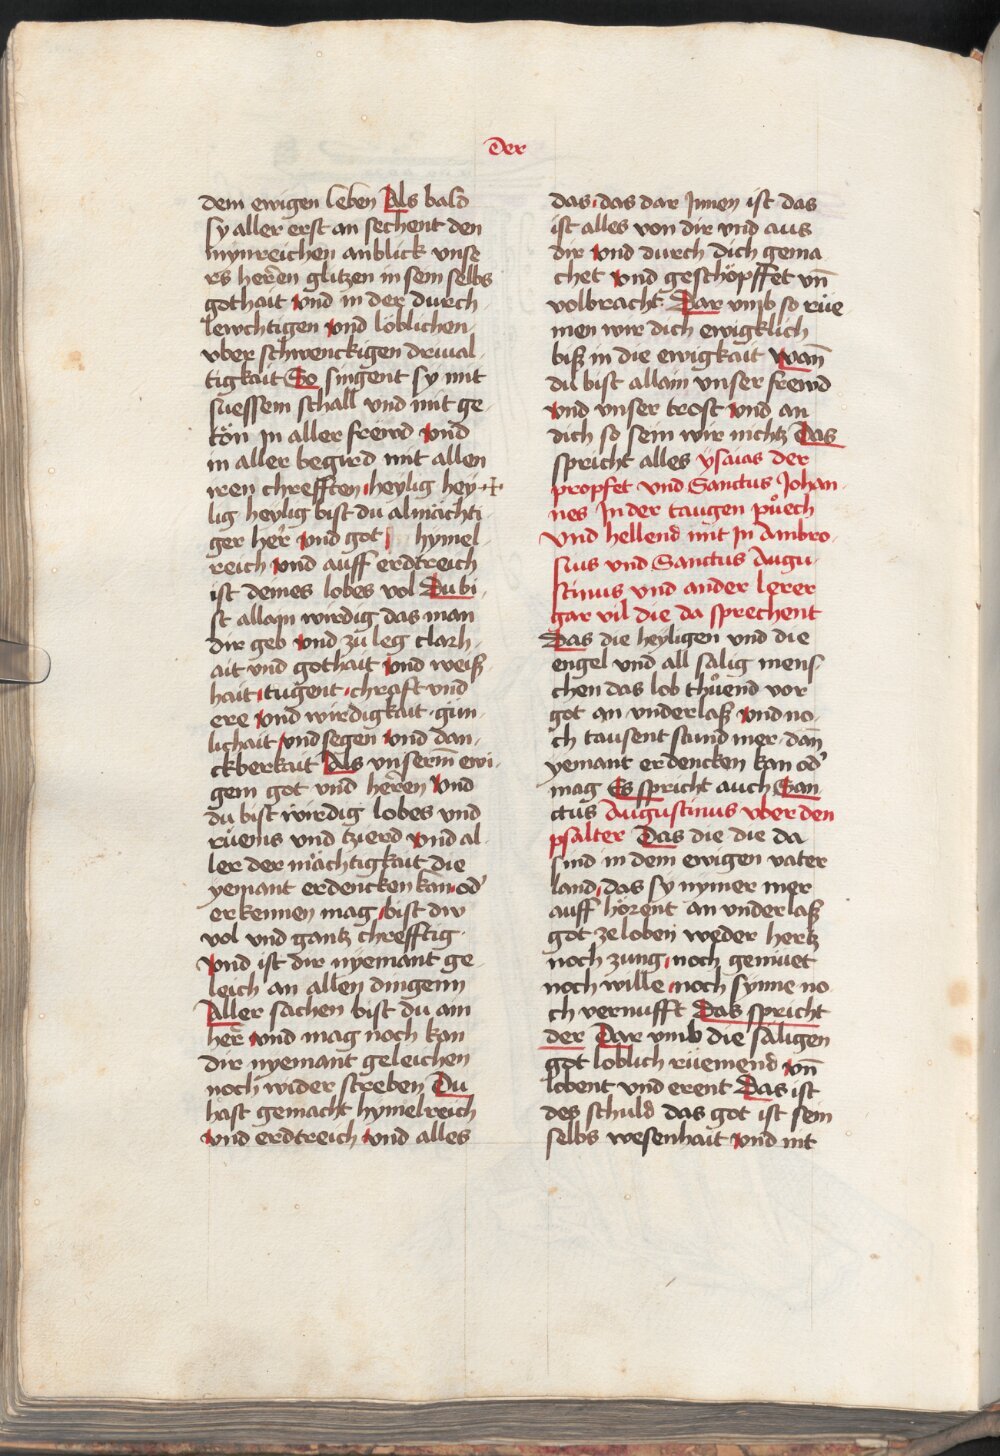 Der
dem ewigen leben Als bald
sy aller erst an sechent den
mynreichen anblick vnse
rs heren glitzen in sein selbs
gothait vnd in der durch
lewchtigen vnd löblichen
vber schwenckigen driual
tigkait So singent sy mit
suessem schall vnd mit ge
tön In aller frewd vnd
in aller begird mit allen
iren chrefften heylig hey
lig heylig bist du almächti
ger her vnd got hymel
reich vnd auff erdtreich
ist deines lobes vol Du bi
st allain wirdig das man
dir geb vnd zu leg clarh
ait vnd gothait vnd weiß
hait tugent chraft vnd
ere vnd wirdigkait gün
lichait vnd segen vnd dan
ckberkait Als vnserm̄ ewi
gem got vnd heren Vnd
du bist wirdig lobes vnd
rüems vnd tzierd vnd al
ler der mächtigkait die
yemant erdencken kan od'
erkennen mag bist dw
vol vnd gantz chrefftig
Vnd ist dir nyemant ge
leich an allen dingenn
Aller sachen bist du ain
her vnd mag noch kan
dir nyemant geleichen
noch wider streben Du
hast gemacht hymelreich
vnd erdtreich vnd alles
das das dar Innen ist das
ist alles von dir vnd aus
dir vnd durch dich gema
chet vnd geschöpffet vn̄
volbracht Dar vmb so rüe
men wir dich ewigklich
biß in die ewigkait wan̄
du bist allain vnser frewd
vnd vnser trost vnd an
dich so sein wir nichtz Das
spricht alles ysaias der
propfet vnd Sanctus Johan
nes In der taugen půech
vnd hellend mit In Ambro
sius vnd Sanctus Augu
stinus vnd ander lerer
gar vil die da sprechent
Das die heyligen vnd die
engel vnd all sälig mens
chen das lob thůend vor
got an vnderlaß vnd no
ch tausent stund mer dan̄
yemant erdencken kan od'
mag Es spricht auch San
ctus Augustinus vber den
psalter Das die die da
sind in dem ewigen vater
land das sy nymer mer
auff hörent an vnderlaß
got ze loben weder hertz
noch zung noch gemüet
noch wille noch synne no
ch vernufft Das spricht
der Dar vmb die säligen
got loblich rüemend vn̄
lobent vnd erent Das ist
des schuld das got ist sein
selbs wesenhait vnd mit